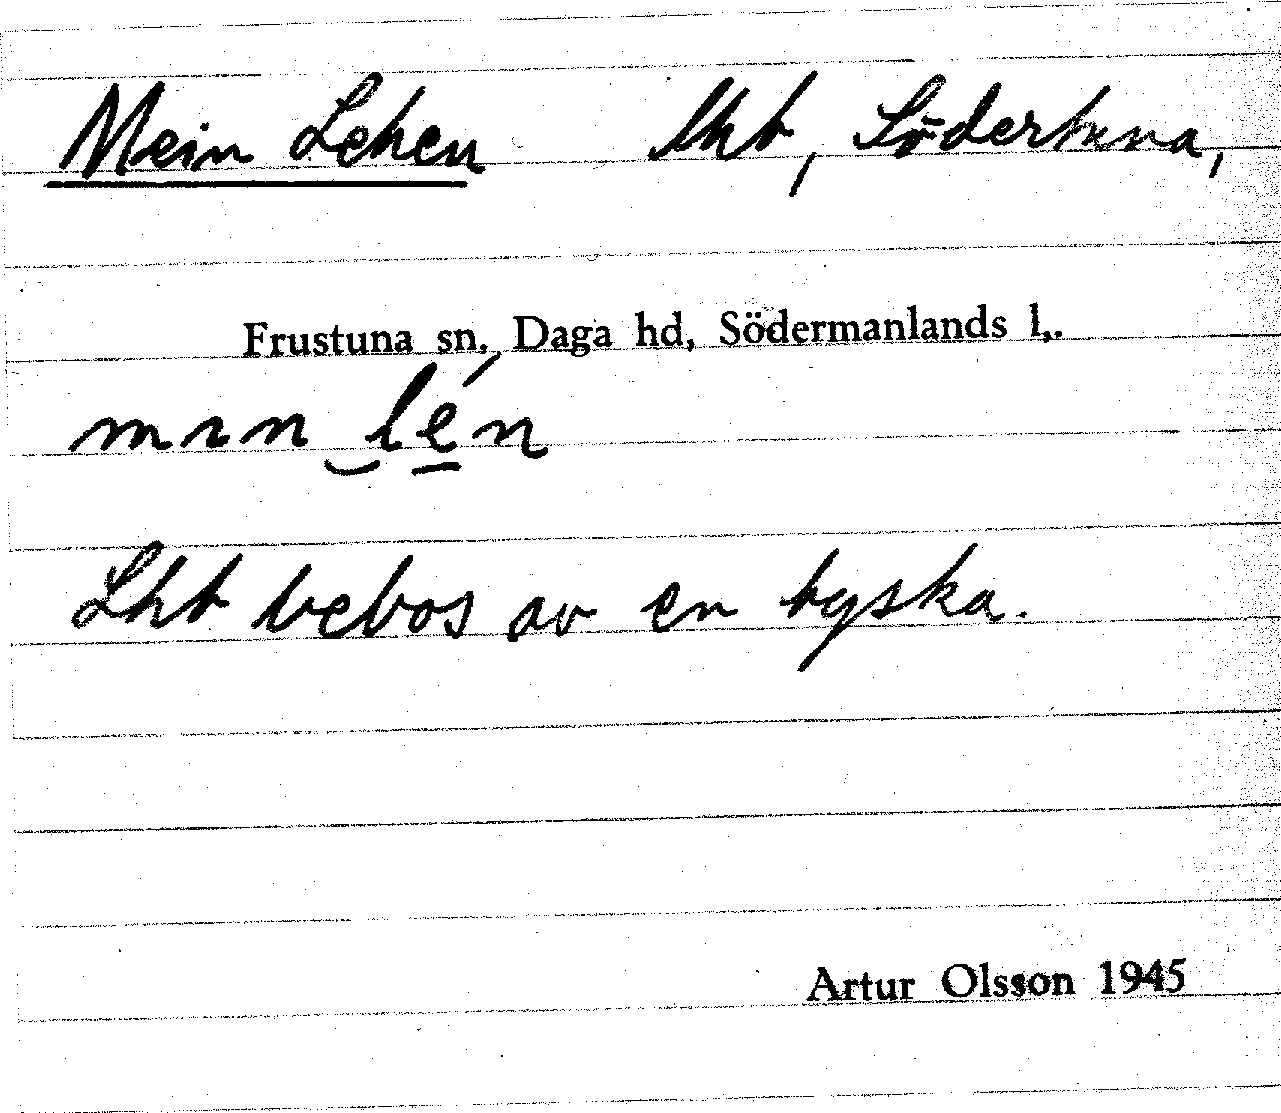 Mein Lehen lht, Södertuna,
Frustuna sn, Daga hd, Södermanlands l.
mın lén
Lht bebos av en tyska.
Artur Olsson 1945